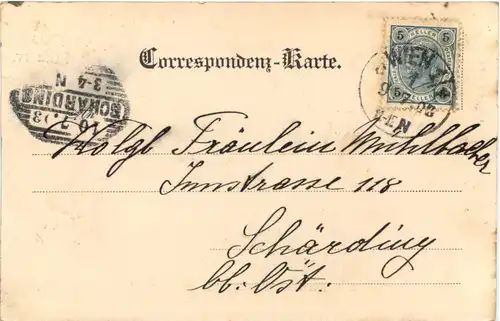 Correspondenz-Karte.
5 HELLER 5
WIEN
SCHÄRDING
3-4 N
Fräulein Mühlbacher
Innstrasse 118
Schärding
ob. Öst.